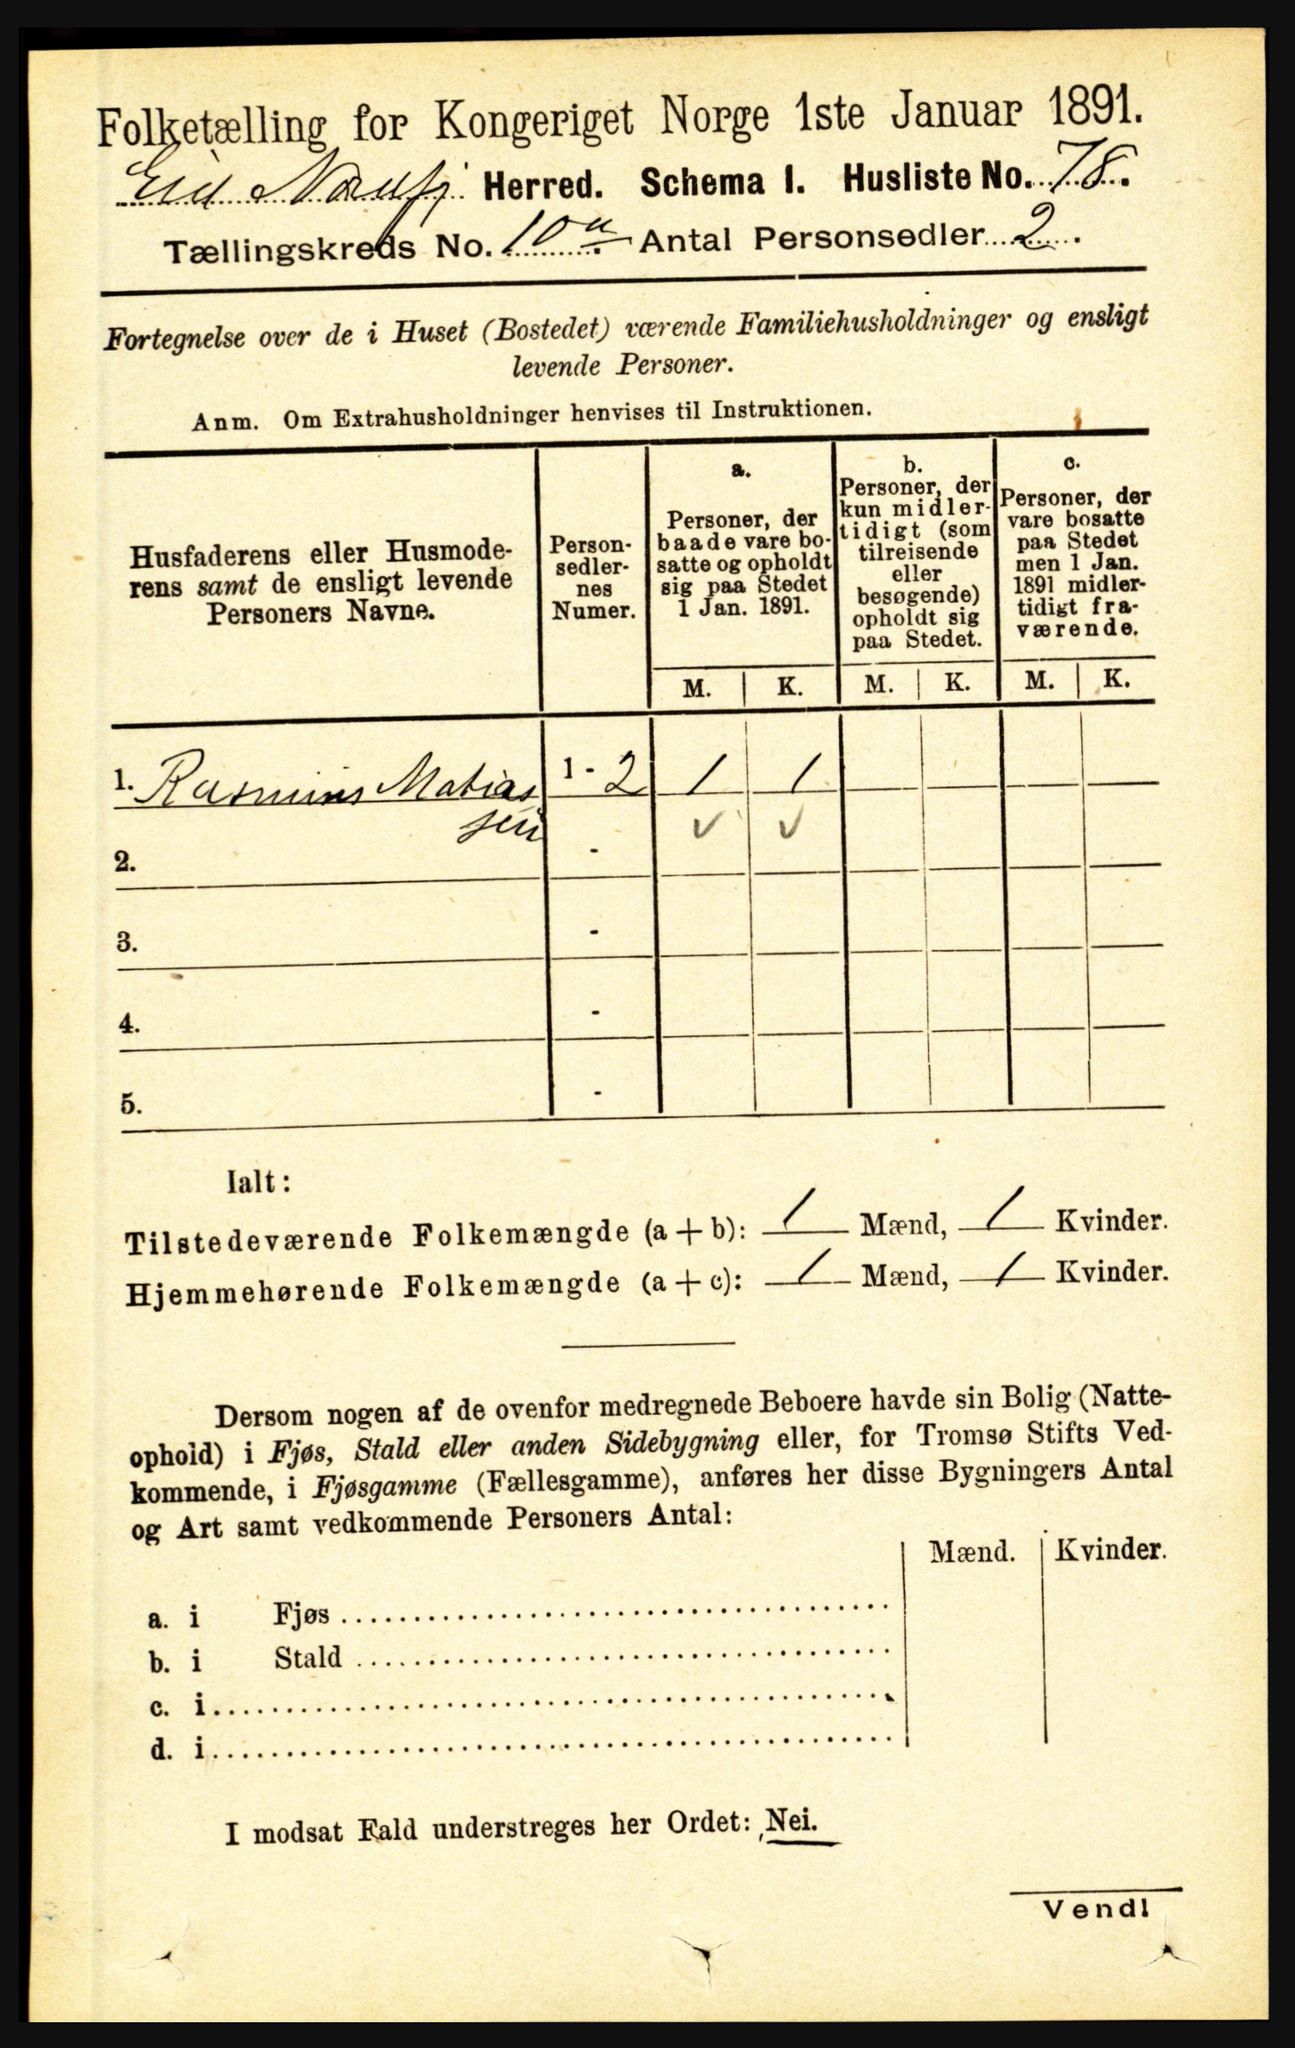 Folketælling for Kongeriget Norge 1ste Januar 1891.
Eid Nordfj Herred. Schema I. Husliste No. 78.
Tællingskreds No. 10a. Antal Personsedler 2.
Fortegnelse over de i Huset (Bostedet) værende Familiehusholdninger og ensligt
levende Personer.
Anm. Om Extrahusholdninger henvises til Instruktionen.
Husfaderens eller Husmode-
rens samt de ensligt levende
Personers Navne.
Person-
sedler-
nes
Numer.
a.
Personer, der
baade vare bo-
satte og opholdt
sig paa Stedet
1 Jan. 1891.
b.
Personer, der
kun midler-
tidigt (som
tilreisende
eller
besøgende)
opholdt sig
paa Stedet.
c.
Personer, der
vare bosatte
paa Stedet
men 1 Jan.
1891 midler-
tidigt fra-
værende.
M. K. M. K. M. K.
1. Rasmus Matias 1 - 2 1 1
sen
2. - v v
3. -
4. -
5. -
Ialt:
Tilstedeværende Folkemængde (a + b): 1 Mænd, 1 Kvinder.
Hjemmehørende Folkemængde (a + c): 1 Mænd, 1 Kvinder.
Dersom nogen af de ovenfor medregnede Beboere havde sin Bolig (Natte-
ophold) i Fjøs, Stald eller anden Sidebygning eller, for Tromsø Stifts Ved-
kommende, i Fjøsgamme (Fællesgamme), anføres her disse Bygningers Antal
og Art samt vedkommende Personers Antal:
Mænd. Kvinder.
a. i Fjøs
b. i Stald
c. i
d. i
I modsat Fald understreges her Ordet: Nei.
Vend!